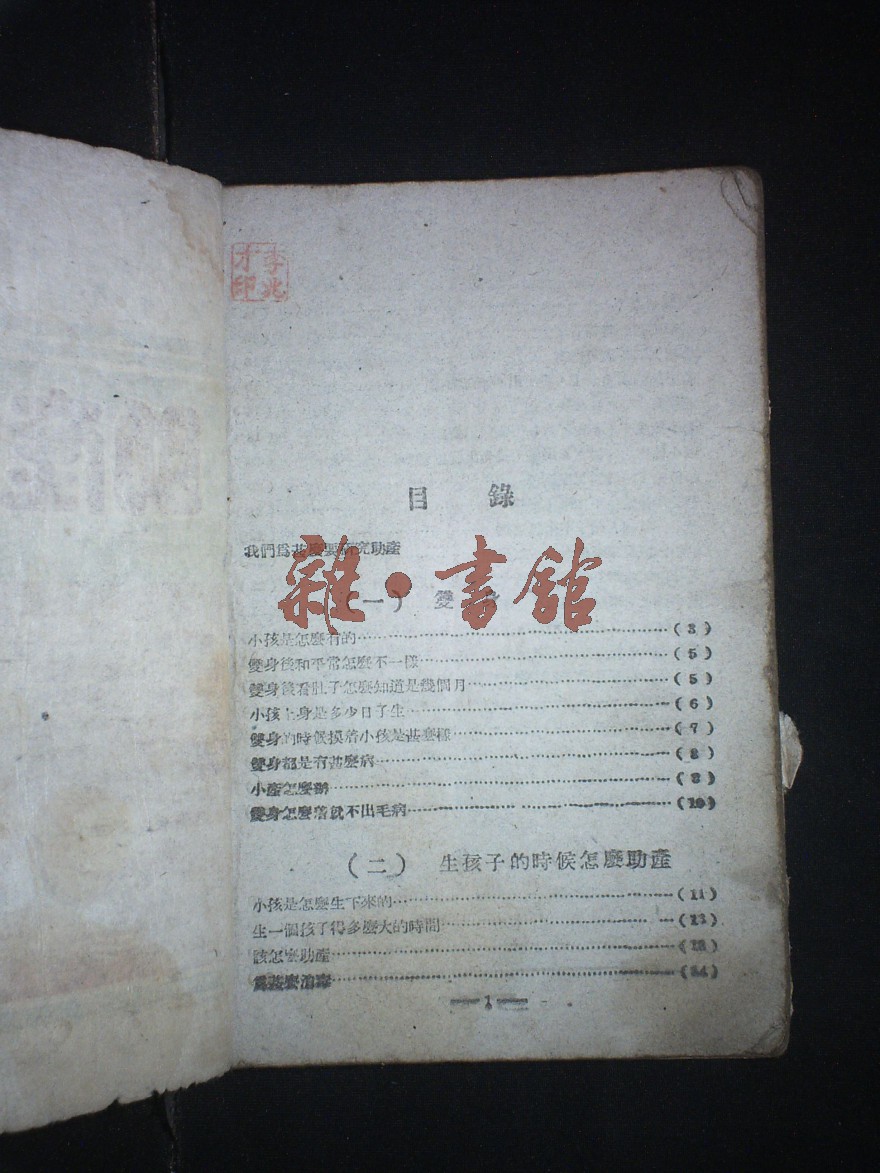 李兆
才印
目錄
我們爲甚麼要研究助產
雜·書館
(一) 雙身
小孩是怎麼有的 (3)
雙身後和平常怎麼不一樣 (5)
雙身後看肚子怎麼知道是幾個月 (5)
小孩上身是多少日子生 (6)
雙身的時候摸着小孩是甚麼樣 (7)
雙身都是有甚麼病 (8)
小產怎麼辦
雙身怎麼着就不出毛病 (10)
(二) 生孩子的時候怎麼助產
小孩是怎麼生下來的 (11)
生一個孩子得多麼大的時間
該怎麼助產
爲甚麼消毒
1